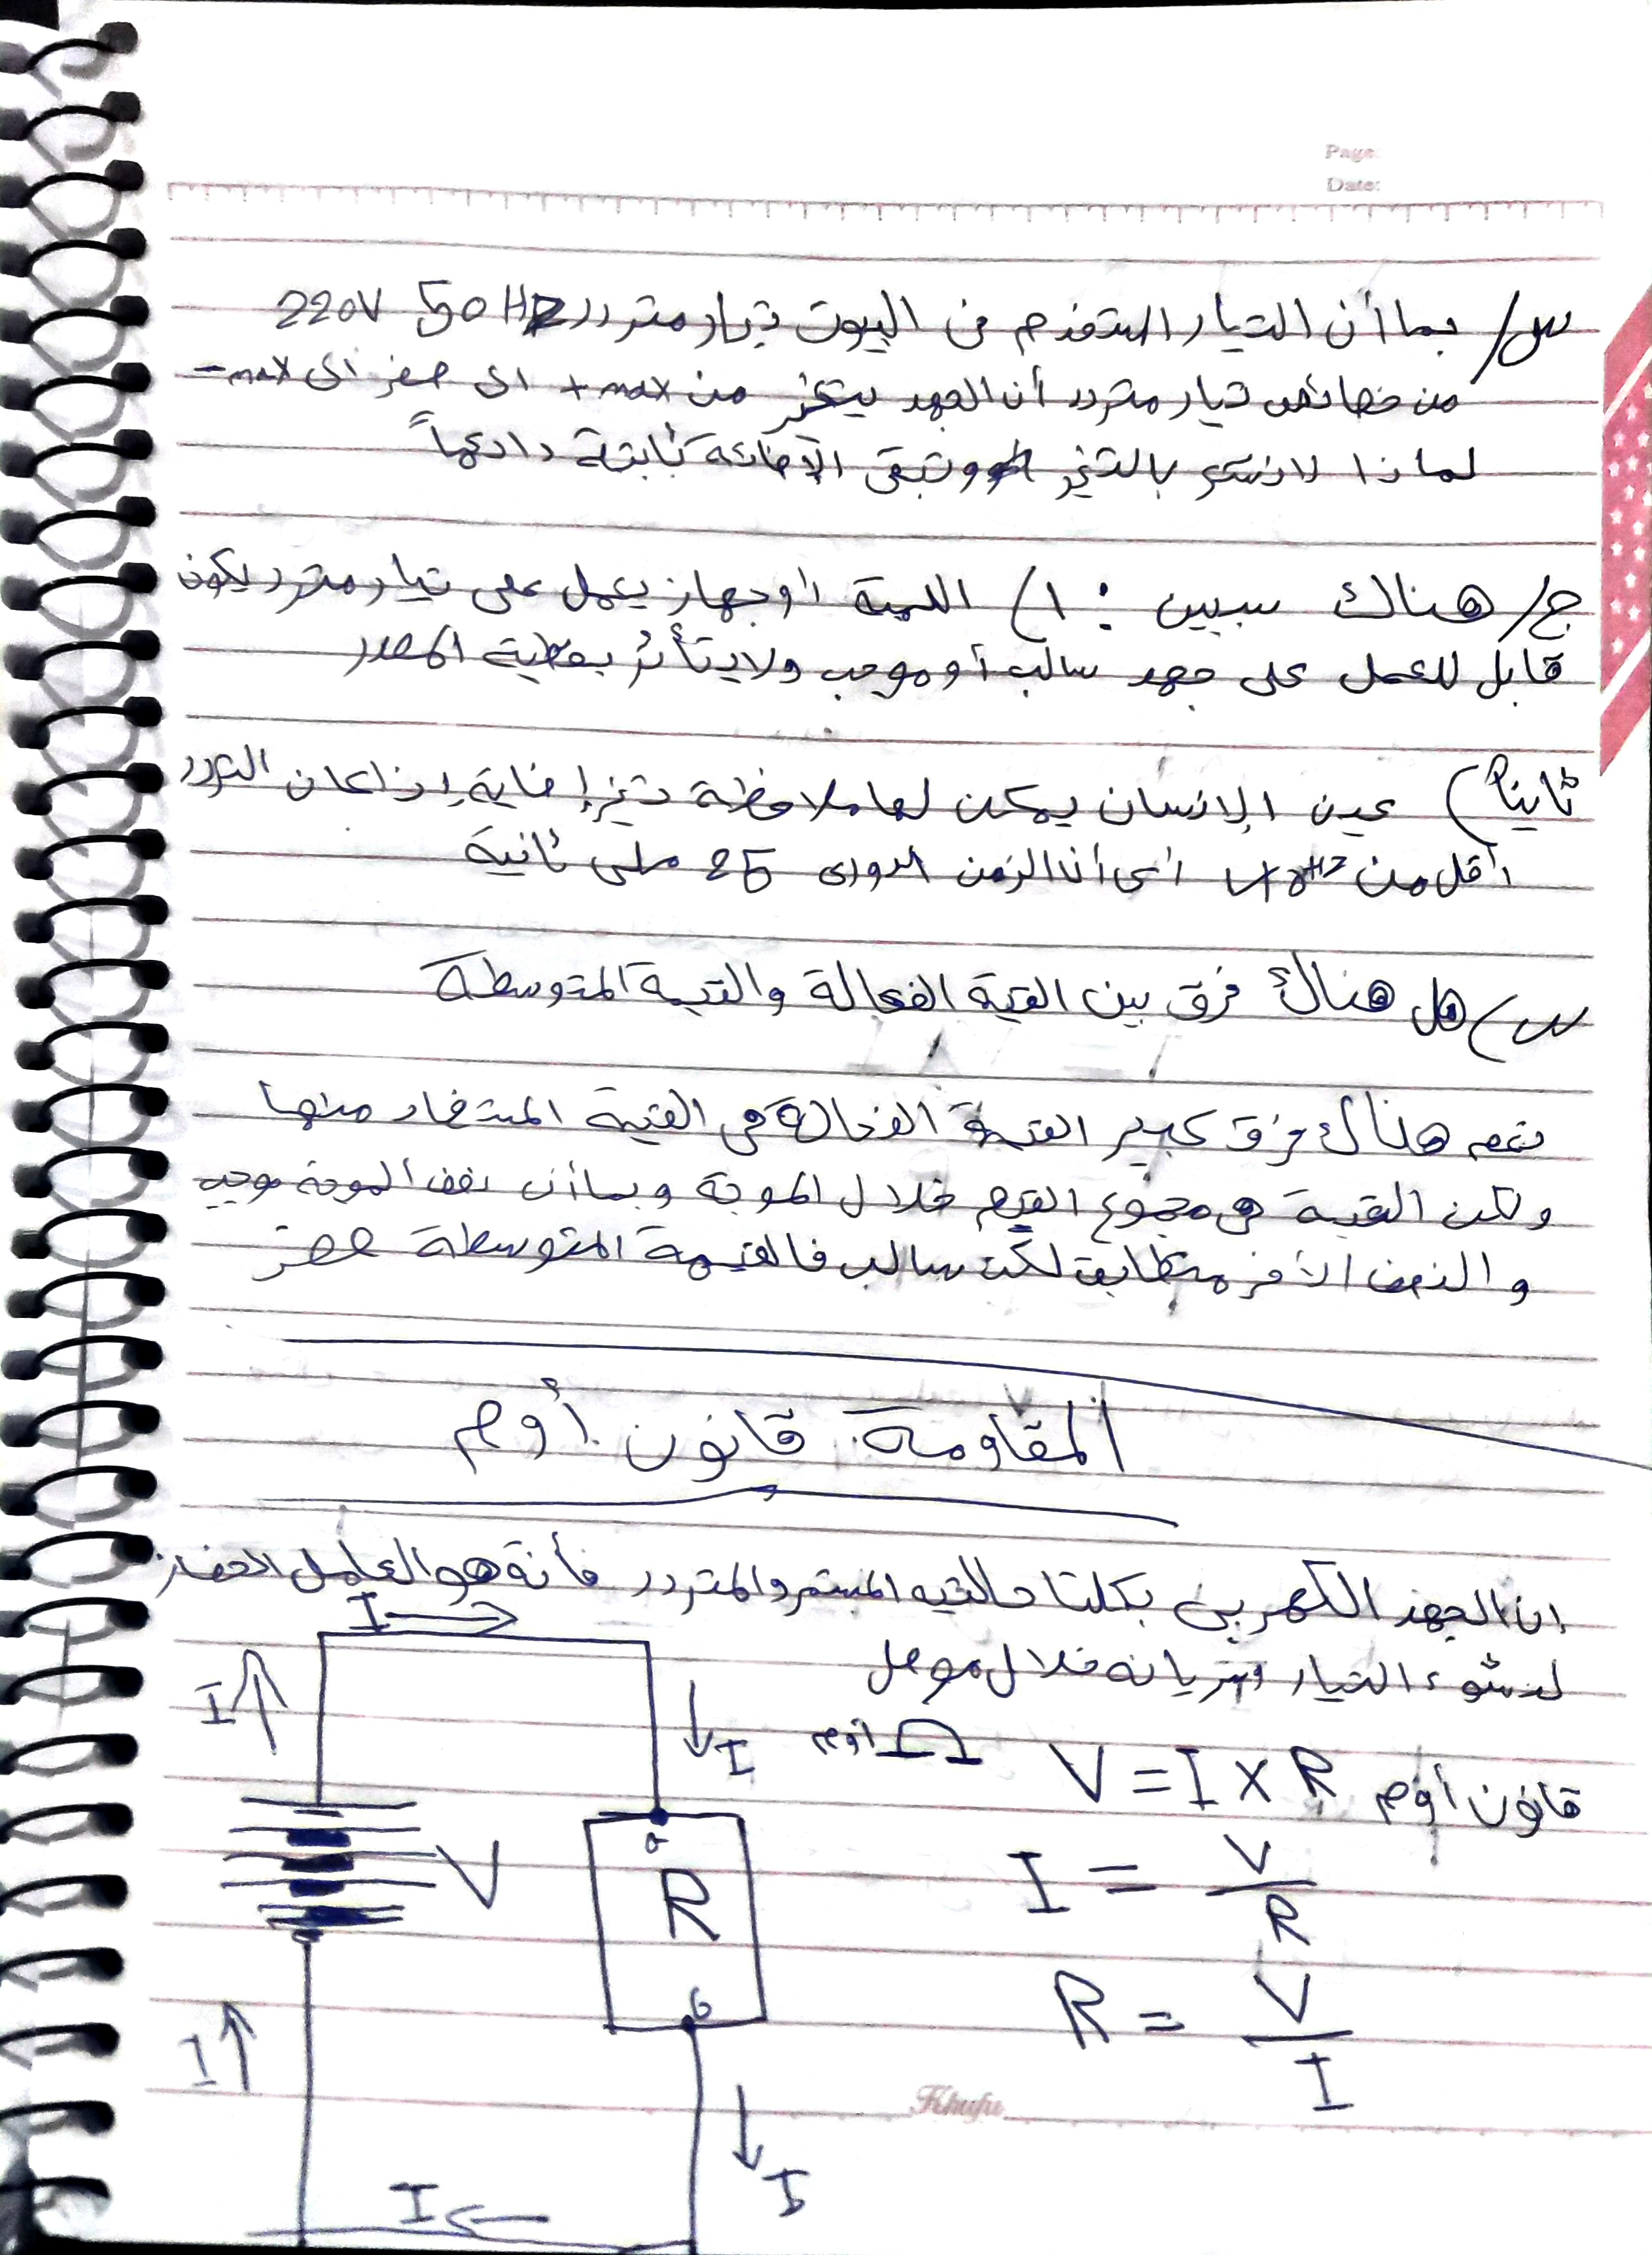 Page:
Date:
س/ بما أن التيار المستخدم فى البيوت تيار متردد 220V 50Hz
من خصائص تيار متردد أن الجهد يتغير من max+ الى صفر الى max-
لماذا لا نشعر بالتغير وتبقى الإضائة ثابتة دائماً
ج/ هناك سببين : 1) اللمبة أو جهاز يعمل على تيار متردد يكون
قابل للعمل على جهد سالب أو موجب ولا يتأثر بقطبية المصدر
ثانياً) عين الإنسان يمكن لها ملاحظة تغير إضاية إذا كان التردد
أقل من Hz أى أن الزمن الدورى 25 ملى ثانية
س) هل هناك فرق بين القيمة الفعالة والقيمة المتوسطة
نعم هناك فرق كبير القيمة الفعالة هى القيمة المستفاد منها
ولكن القيمة هى مجموع القيم خلال الموجة وبما أن نصف الموجة موجب
والنصف الأخر متطابق لكن سالب فالقيمة المتوسطة صفر
المقاومة قانون أوم
إن الجهد الكهربى بكلتا حالتيه المستمر والمتردد فأنة هو العامل الحفاز
لنشوء التيار وسريانه خلال موصل
قانون أوم V = I X R Ω أوم
I = V/R
R = V/I
I
I
I
V
a
R
b
I
I
I
Khufu